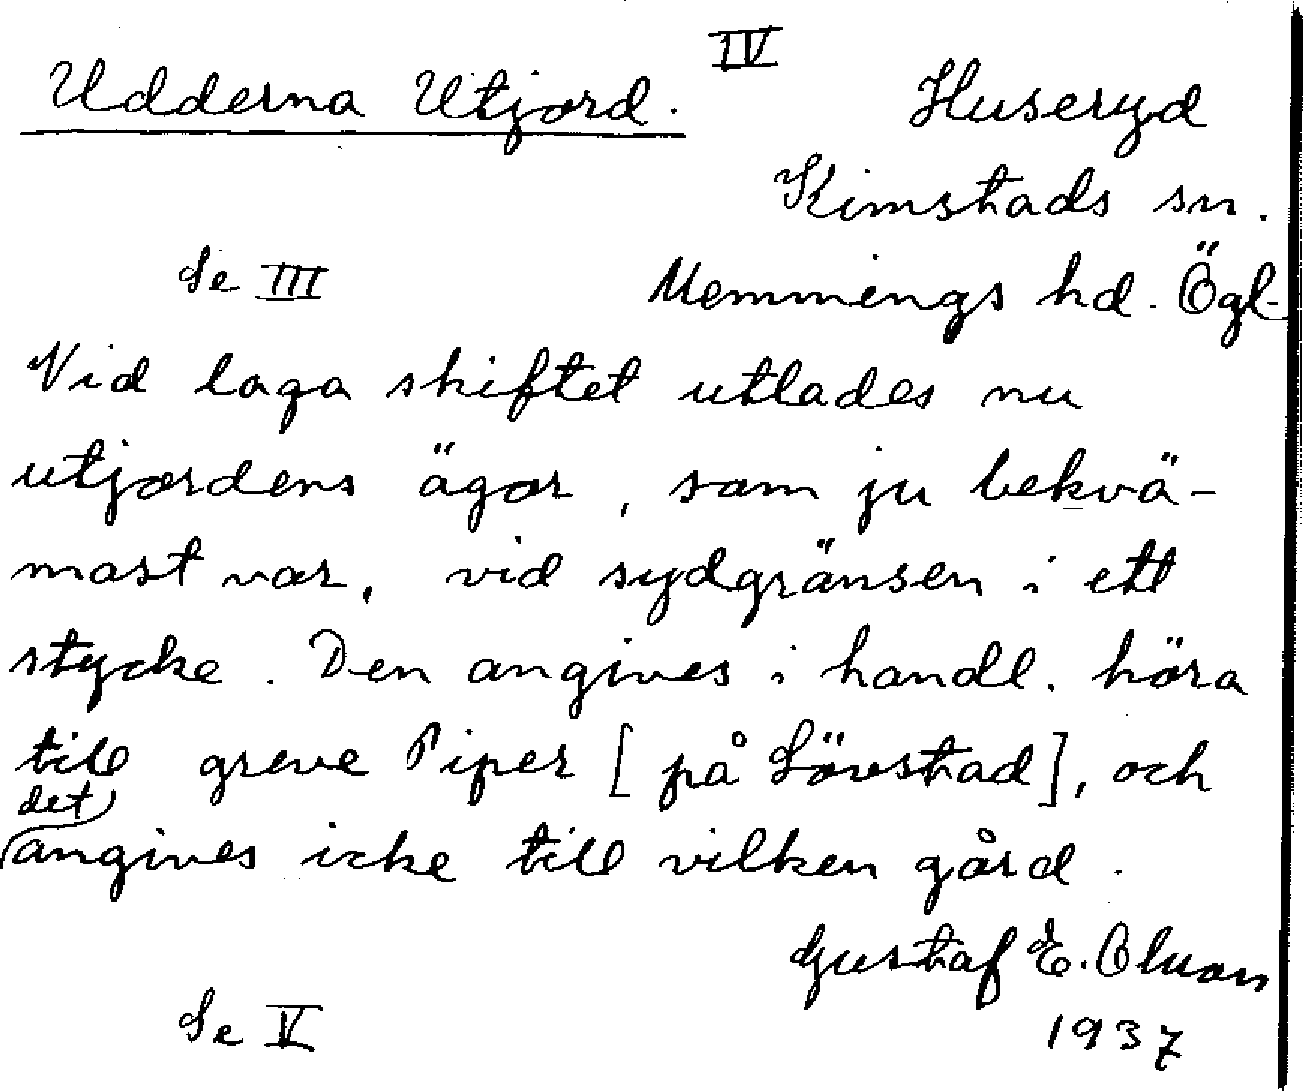 IV
Udderna Utjord.
Huseryd
Kimstads sn.
Se III
Memmings hd. Ögl.
Vid laga skiftet utlades nu
utjordens ägor, som ju bekvä-
mast var, vid sydgränsen i ett
stycke. Den angives i handl. höra
till greve Piper [på Lövstad], och
det
angives icke till vilken gård.
Gustaf E. Olsson
Se V
1937